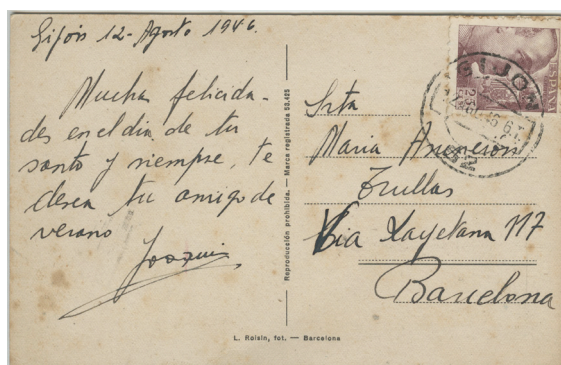 Gijón 12-Agosto 1946.
Muchas felicida-
des en el dia de tu
santo y siempre, te
desea tu amigo de
verano
Joaquin
Reproducción prohibida. — Marca registrada 53.425
Srta
Maria Asuncion
Trullas
Via Layetana 117
Barcelona
L. Roisin, fot. — Barcelona
ESPAÑA
GIJON